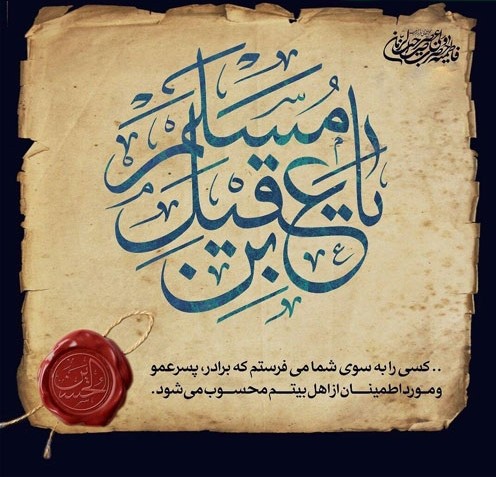 یا مسلم بن عقیل
..کسی را به سوی شما می فرستم که برادر، پسرعمو
و مورد اطمینان از اهل بیتم محسوب می‌شود.
الحسین